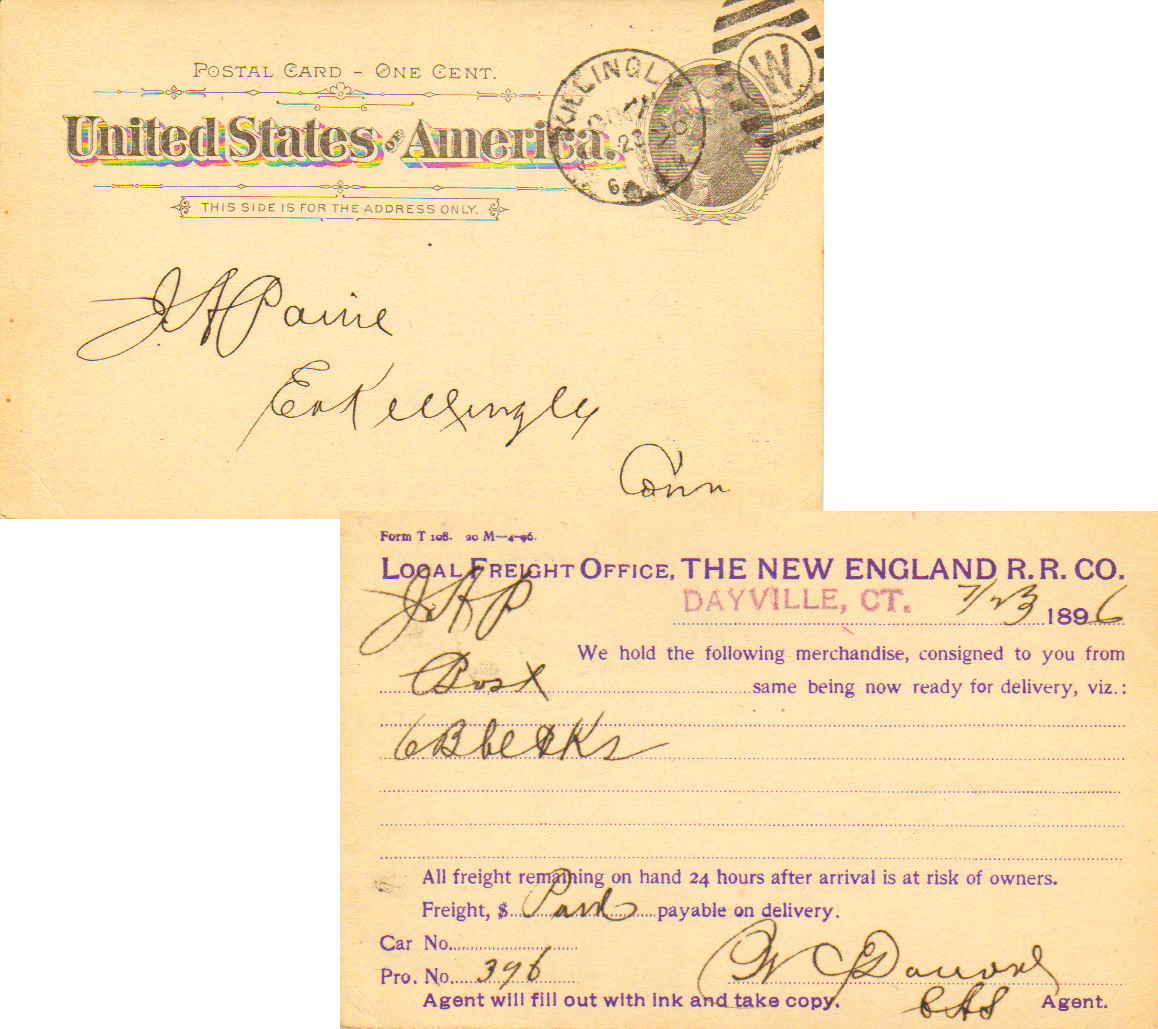 POSTAL CARD - ONE CENT.
United States OF America.
THIS SIDE IS FOR THE ADDRESS ONLY.
KILLINGLY
23
6
W
J A Paine
E Killingly
Conn
Form T 108. 20 M—4-96.
LOCAL FREIGHT OFFICE, THE NEW ENGLAND R. R. CO.
J A P
DAYVILLE, CT. 7/23 1896
We hold the following merchandise, consigned to you from
Bost same being now ready for delivery, viz.:
6
All freight remaining on hand 24 hours after arrival is at risk of owners.
Freight, $ Paid payable on delivery.
Car No.
Pro. No. 396
Agent will fill out with ink and take copy. Agent.